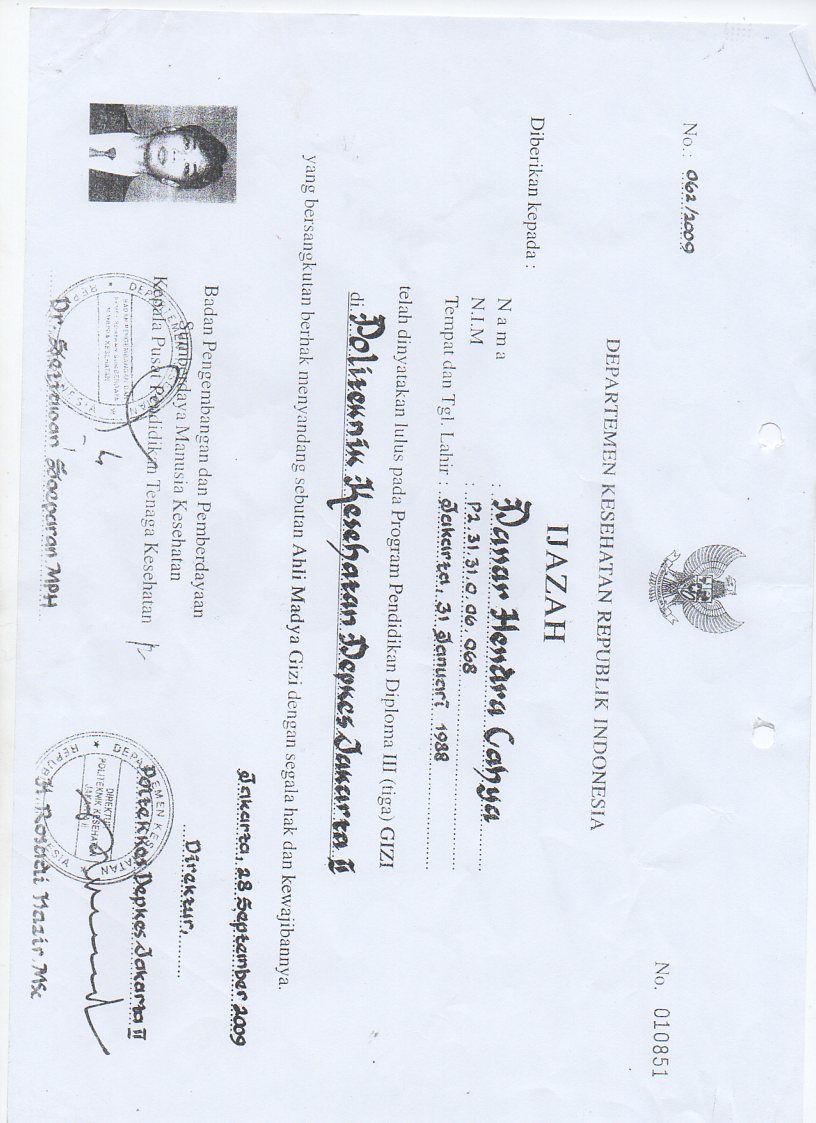 No.: 062/2009
No. 010851
DEPARTEMEN KESEHATAN REPUBLIK INDONESIA
IJAZAH
Diberikan kepada :
Nama : Danar Hendra Cahya
N.I.M : P2.31.31.0.06.068
Tempat dan Tgl. Lahir : Jakarta, 31 Januari 1988
telah dinyatakan lulus pada Program Pendidikan Diploma III (tiga) GIZI
di Politeknik Kesehatan Depkes Jakarta II
yang bersangkutan berhak menyandang sebutan Ahli Madya Gizi dengan segala hak dan kewajibannya.
Jakarta, 28 September 2009
Badan Pengembangan dan Pemberdayaan
Sumberdaya Manusia Kesehatan
Kepala Pusat Pendidikan Tenaga Kesehatan
Dr. Setiawan Soeparan MPH
Direktur,
Poltekkes Depkes Jakarta II
DEPARTEMEN KESEHATAN
DIREKTUR
POLITEKNIK KESEHATAN
JAKARTA II
H. Rosadi Nazir. MSc